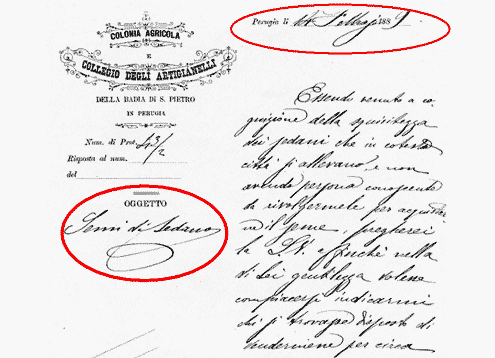 COLONIA AGRICOLA
E
COLLEGIO DEGLI ARTIGIANELLI
DELLA BADIA DI S. PIETRO
IN PERUGIA
Num. di Prot. 43/2
Risposta al num.
del
OGGETTO
Semi di Sedano
Perugia li Febbraio 188
Essendo venuto a co
gnizione della squisitezza
dei sedani che in cotesta
città si allevano, e non
avendo persona conoscente
da rivolgermele per acquisi
il seme, pregherei
la S.V. affinché nella
di Lei gentilezza volesse
compiacersi indicarmi
chi si trovasse disposto di
vendermene per circa